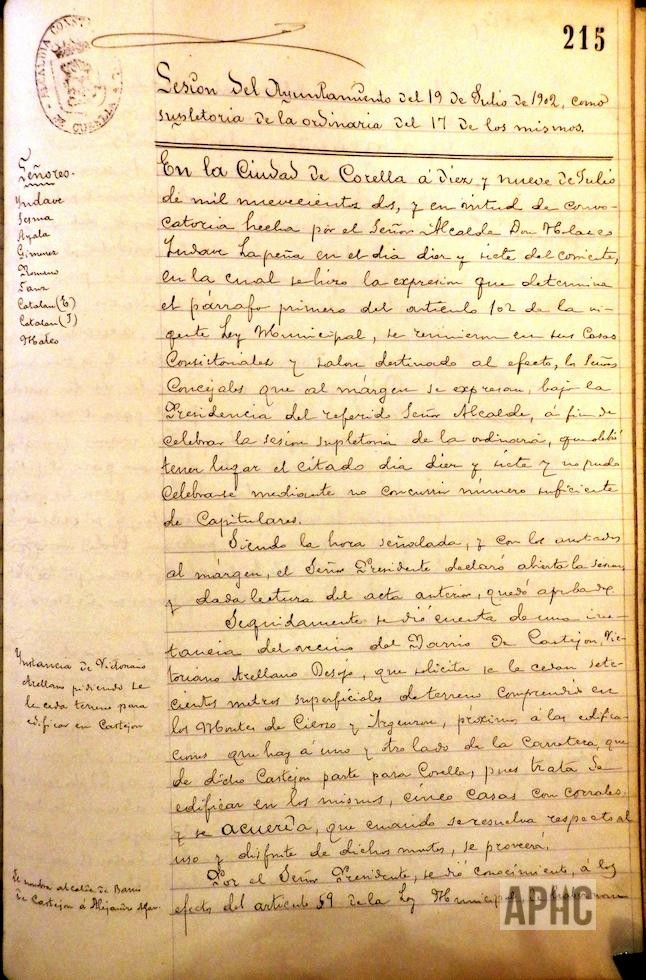 215
ALCALDIA CONST
DE CORELLA
Sesion del Ayuntamiento del 19 de Julio de 1902, como
supletoria de la ordinaria del 17 de los mismos.
Señores.
Yndave
Sesma
Ayala
Gimenez
Romano
Sanz
Catalan (E)
Catalan (J)
Mateo
En la Ciudad de Corella á diez y nueve de Julio
de mil nuevecientos dos, y en virtud de convo-
catoria hecha por el Señor Alcalde Don
Yndave Lapeña en el dia diez y siete del corriente,
en la cual se hizo la expresion que determina
el párrafo primero del articulo 102 de la vi-
gente Ley Municipal, se reunieron en sus Casas
Consistoriales y salon destinado al efecto, los Señs
Concejales que al márgen se expresan, bajo la
Presidencia del referido Señor Alcalde, á fin de
celebrar la sesion supletoria de la ordinaria, que debió
tener lugar el citado dia diez y siete y no pudo
celebrarse mediante no concurrir número suficiente
de Capitulares.
Siendo la hora señalada, y con los anotados
al márgen, el Señor Presidente declaró abierta la sesion,
y dada lectura del acta anterior, quedó aprobada.
Seguidamente se dió cuenta de una ins-
tancia del vecino del Barrio de Castejon, Vic-
toriano Arellano Desojo, que solicita se le cedan sete-
cientos metros superficiales de terreno comprendido en
los Montes de Cierzo y Argenzon, próximos á las edifica-
ciones que hay á uno y otro lado de la carretera, que
de dicho Castejon parte para Corella, pues trata de
edificar en los mismos, cinco casas con corrales
y se acuerda, que cuando se resuelva respecto al
uso y disfrute de dichos montes, se proveerá.
Ynstancia de Victoriano
Arellano pidiendo se
le ceda terreno para
edificar en Castejon
Por el Señor Presidente, se dió conocimiento, á los
efectos del articulo 59 de la Ley Municipal, de
Se nombra alcalde de Barrio
de Castejon á Alejandro
APHC